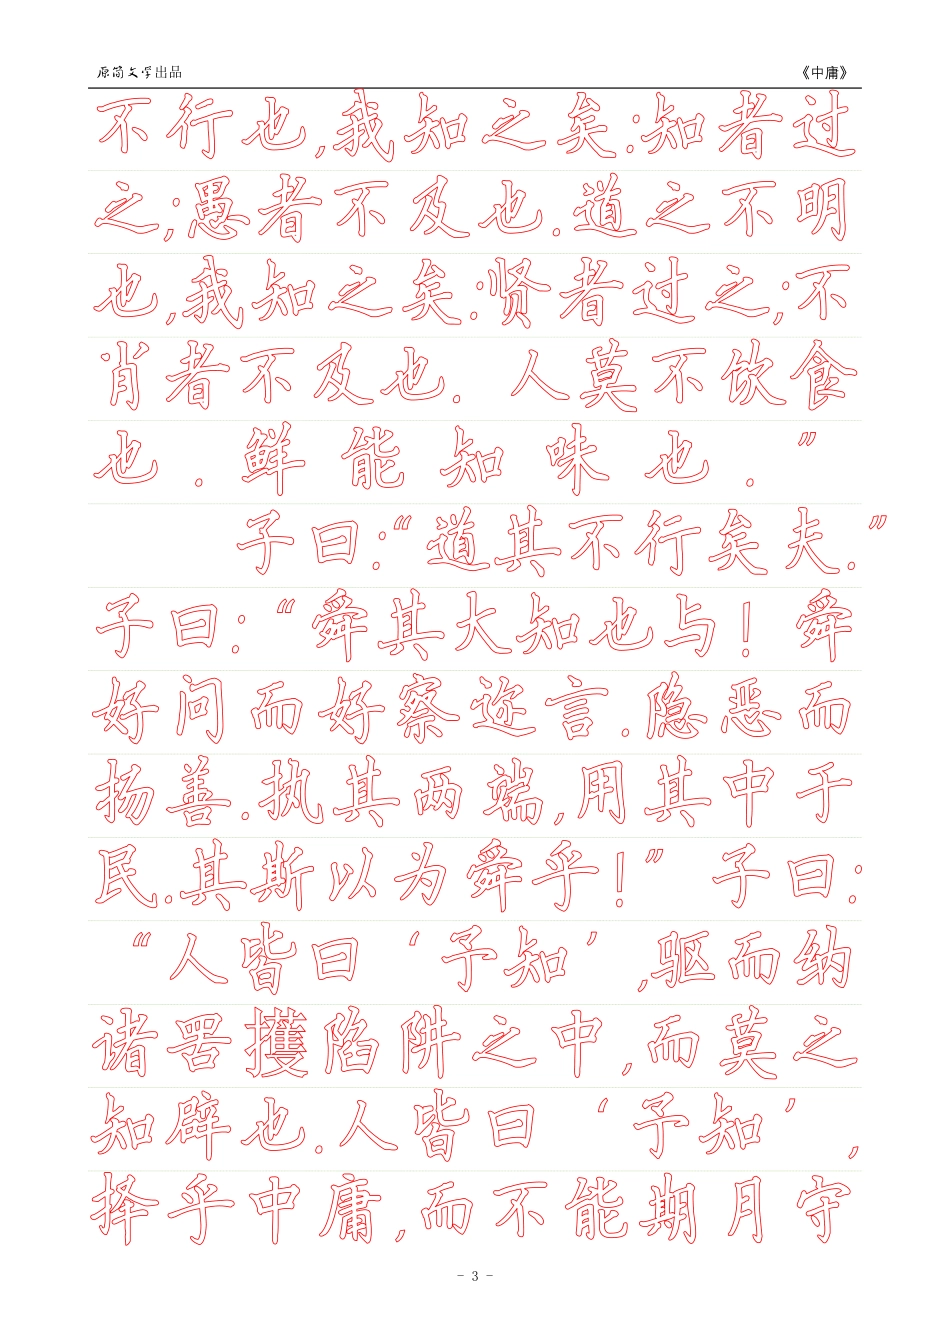 原简文学出品 《中庸》
不行也,我知之矣:知者过
之;愚者不及也.道之不明
也,我知之矣:贤者过之;不
肖者不及也. 人莫不饮食
也.鲜能知味也.”
子曰:“道其不行矣夫.”
子曰:“舜其大知也与! 舜
好问而好察迩言.隐恶而
扬善.执其两端,用其中于
民.其斯以为舜乎!” 子曰:
“人皆曰‘予知’,驱而纳
诸罟擭陷阱之中,而莫之
知辟也.人皆曰‘予知’,
择乎中庸,而不能期月守
- 3 -